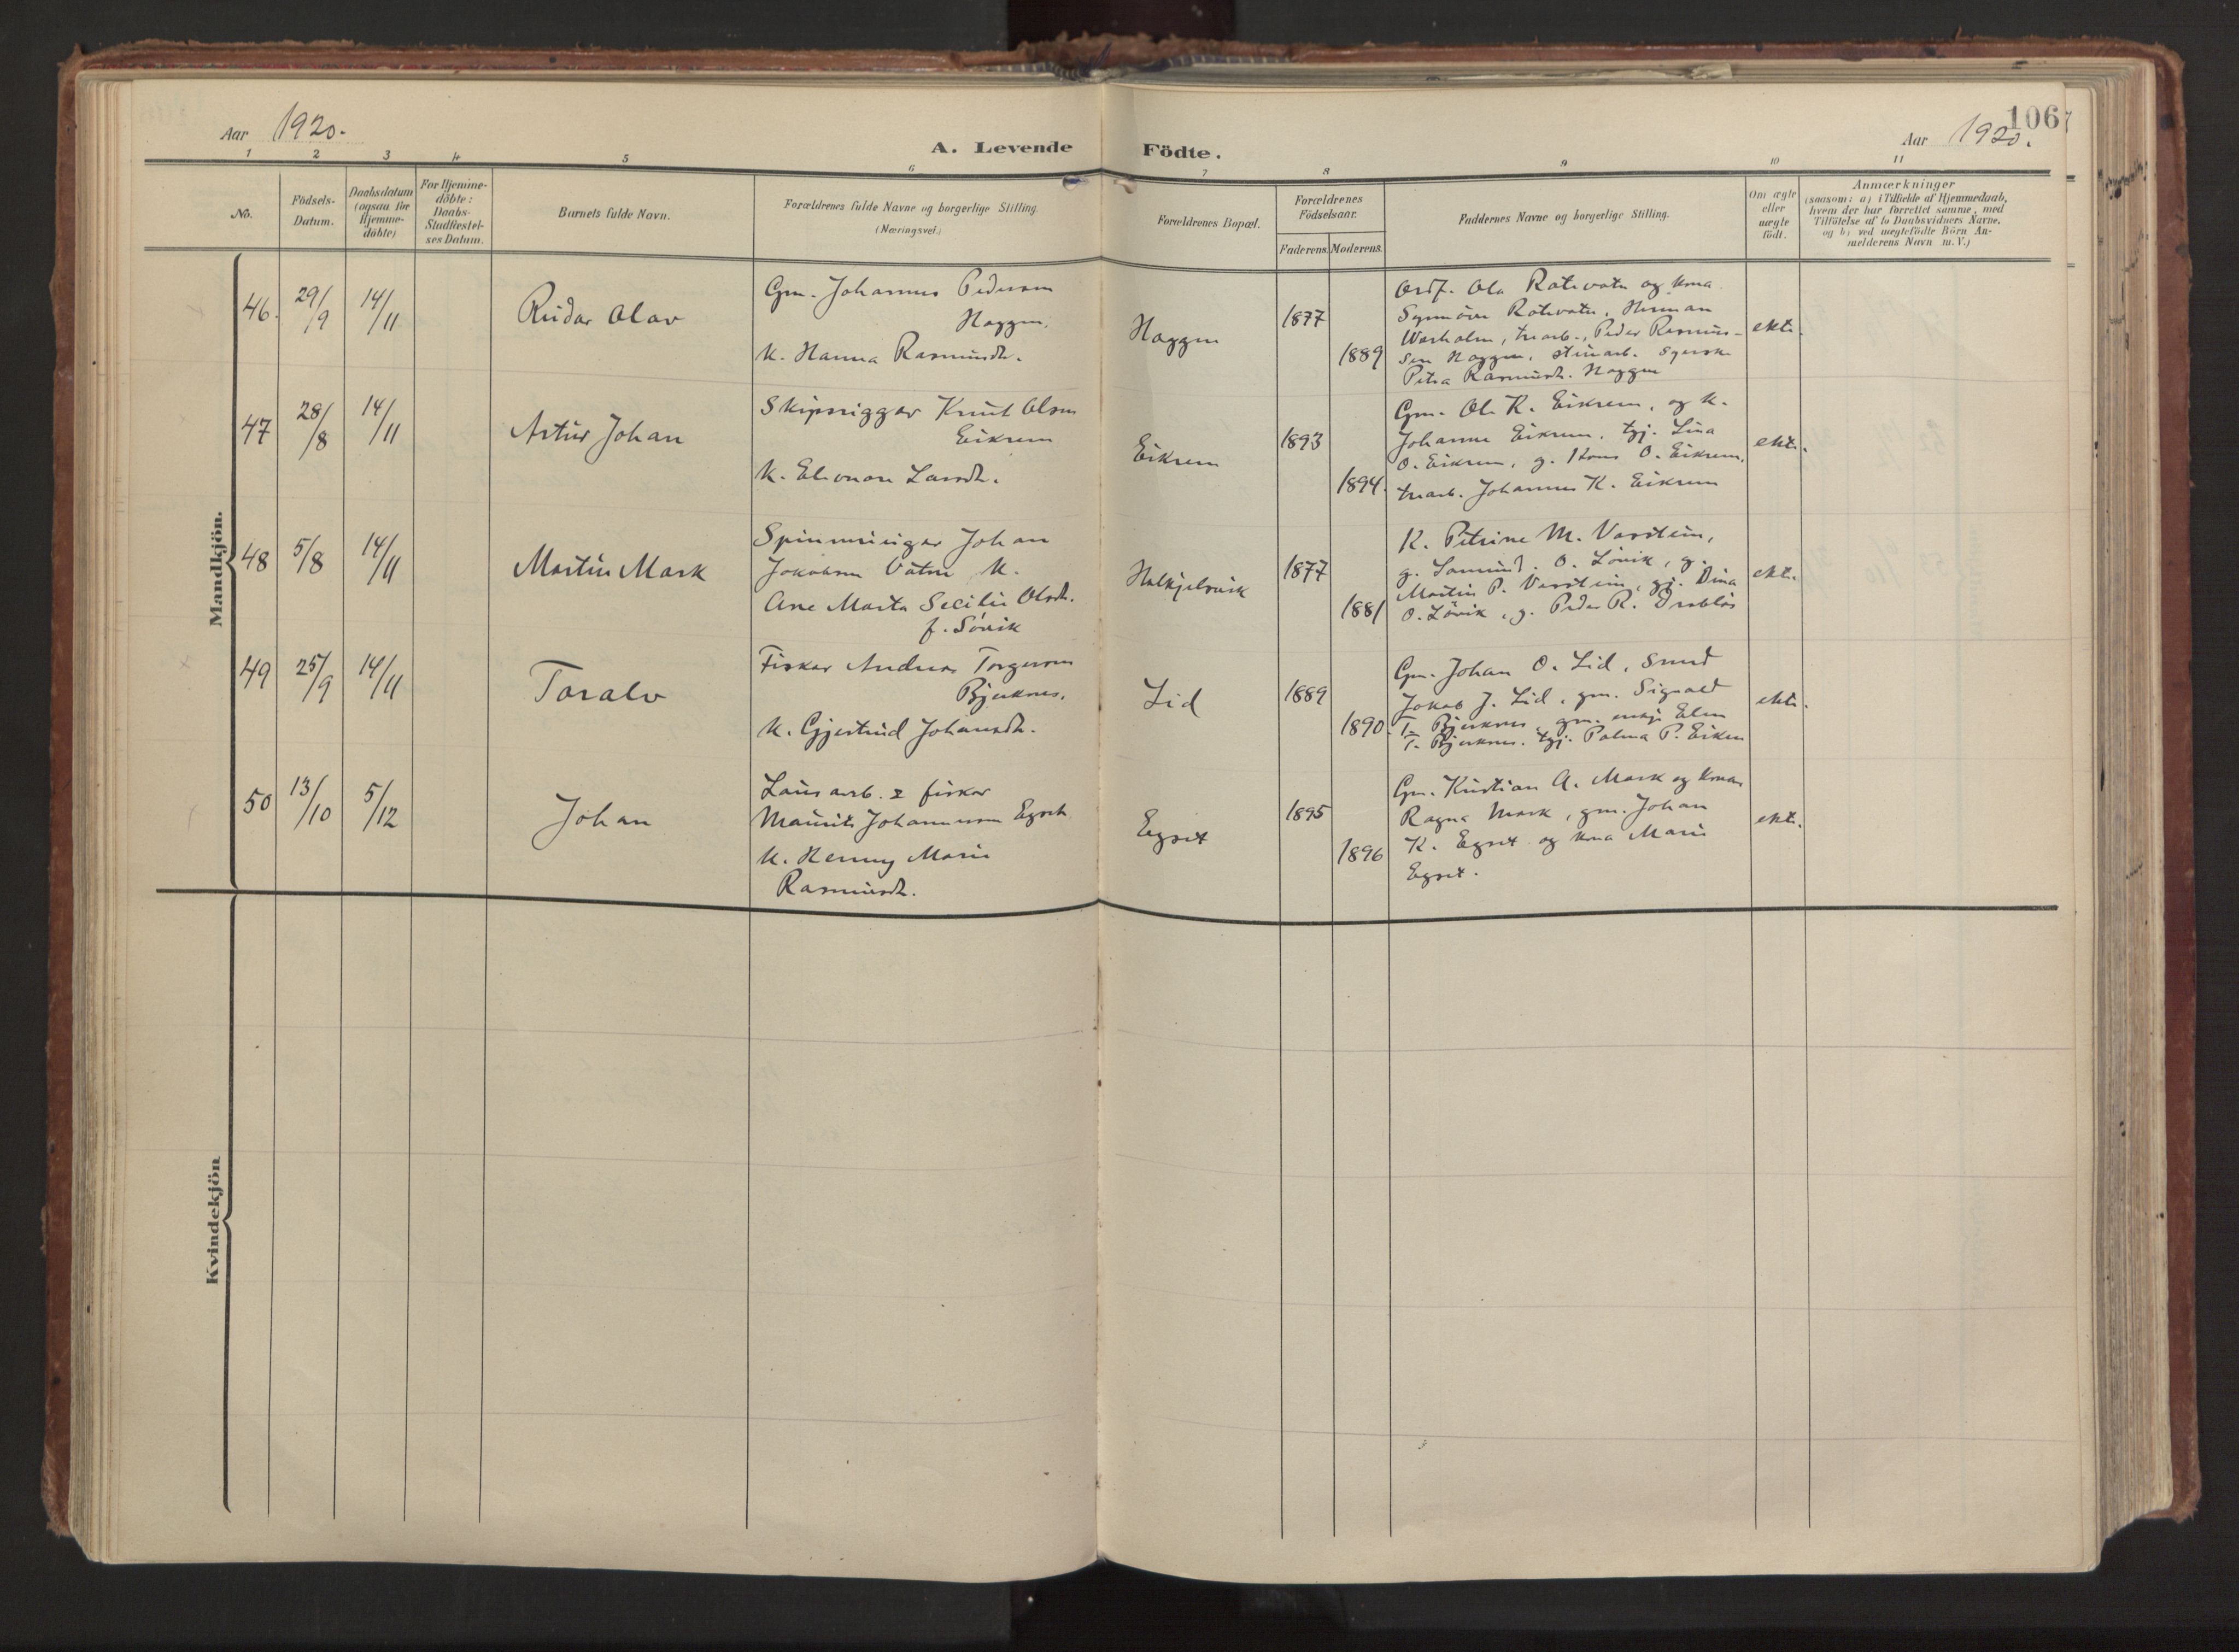 Aar 1920.
106
Aar 1920.
A. Levende Födte.
1 2 3 4 5 6 7 8 9 10 11
No.
Födsels-
Datum.
Daabsdatum
(ogsaa for
Hjemme-
döbte)
For Hjemme-
döbte:
Daabs-
Stadfæstel-
ses Datum.
Barnets fulde Navn.
Forældrenes fulde Navne og borgerlige Stilling.
(Næringsvei.)
Forældrenes Bopæl.
Forældrenes
Födselsaar.
Faderens. Moderens.
Faddernes Navne og borgerlige Stilling.
Om ægte
eller
uægte
födt.
Anmærkninger
(saasom: a) i Tilfælde af Hjemmedaab,
hvem der har forrettet samme, med
Tilföielse af to Daabsvidners Navne,
og b) ved uægtefödte Börn An-
melderens Navn m. V.)
Mandkjön.
46.
29/9
14/11
Reidar Olav
Gm. Johannes Pedersen
Haggen.
K. Hanna Rasmusdt.
Haggen
1877
1889
Ordf. Ola Rotevatn og kona
Synnöve Rotevatn, Herman
Warholm, trearb., Peder Rasmus-
sen Haggen, steinarb. Syerske
Petra Rasmusdt. Haggen
ekte.
47
28/8
14/11
Artur Johan
Skipsrigger Knut Olsen
Eikrem
K. Elionore Larsdt.
Eikrem
1893
1894.
Gm. Ole K. Eikrem, og K.
Johanne Eikrem, tgj. Lina
O. Eikrem, g. O. Eikrem.
trearb. Johannes K. Eikrem
ekte.
48
5/8
14/11
Martin Mark
Spinneriegar Johan
Jakobsen Vatne K.
Ane Marta Secilie Olsdt.
f. Lövik
Halkjelsvik
1877
1881
K. Petrine M. Varstein,
g. O. Lövik, g.
Martin P. Varstein, gj. Dina
O. Lövik, g. Peder R. Drabløs
ekte.
49
25/9
14/11
Toralv
Fisker Andreas Torgersen
Bjerknes.
K. Gjertrud Johansdt.
Lid
1889
1890.
Gm. Johan O. Lid, smed
Jakob J. Lid, gm. Sigvald
T. Bjerknes, gm. enkje Elen
T. Bjerknes. tgj. Palma P. Eiken
ekte.
50
13/10
5/12
Johan
Lausarb. & fisker
Maurits Johannessen Egset
K. Henny Marie
Rasmusdt.
Egset
1895
1896
Gm. Kristian A. Mark og konen
Ragna Mark, gm. Johan
K. Egset og kona Marie
Egset.
ekte.
Kvindekjön